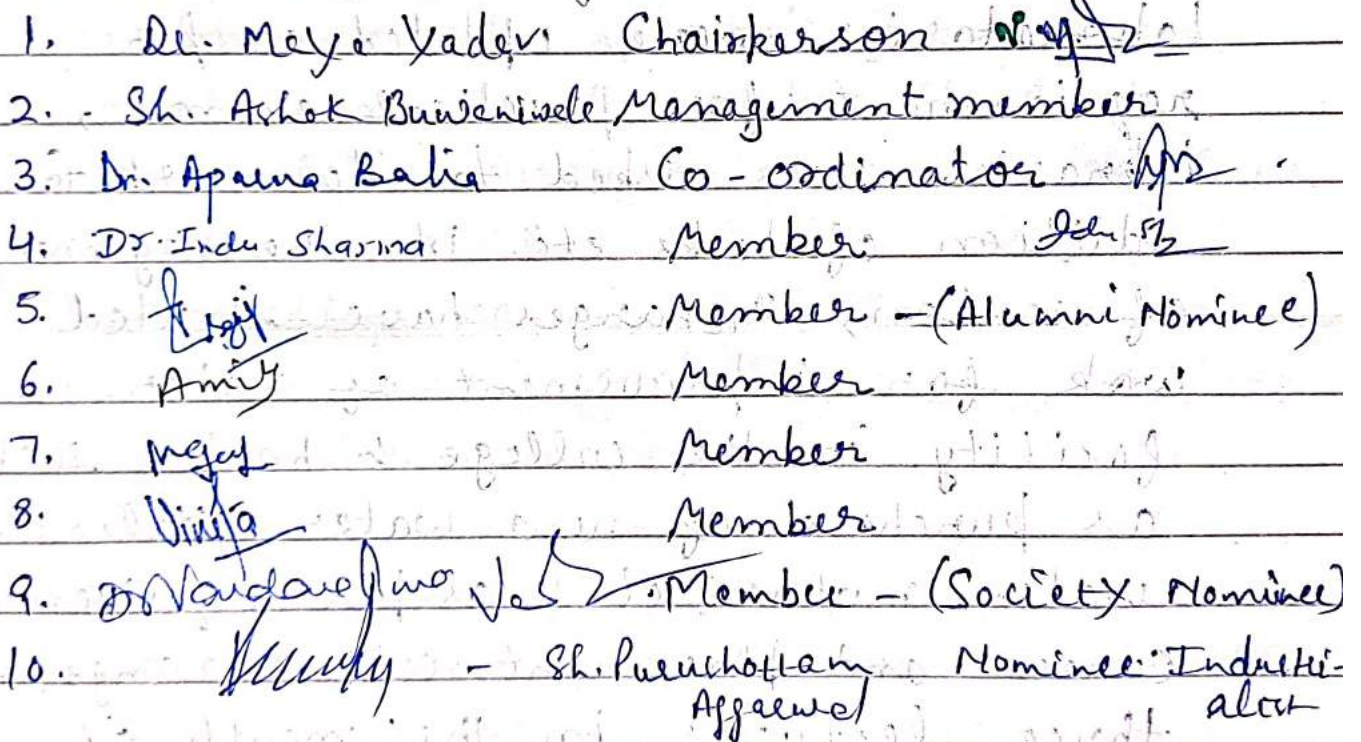 1. Dr. Maya Yadav Chairperson
2. Sh. Ashok Buwaniwala Management member
3. Dr. Aparna Batra Co-ordinator
4. Dr. Indu Sharma Member
5. Member - (Alumni Nominee)
6. Amit Member
7. Member
8. Vinita Member
9. Dr Vandana Member - (Society Nominee)
10. - Sh. Purushottam Nominee Industri-
Aggarwal alist